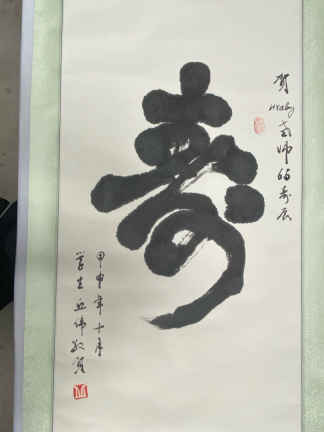 贺
老师的寿辰
寿
甲申年十月
学生丘伟敬贺